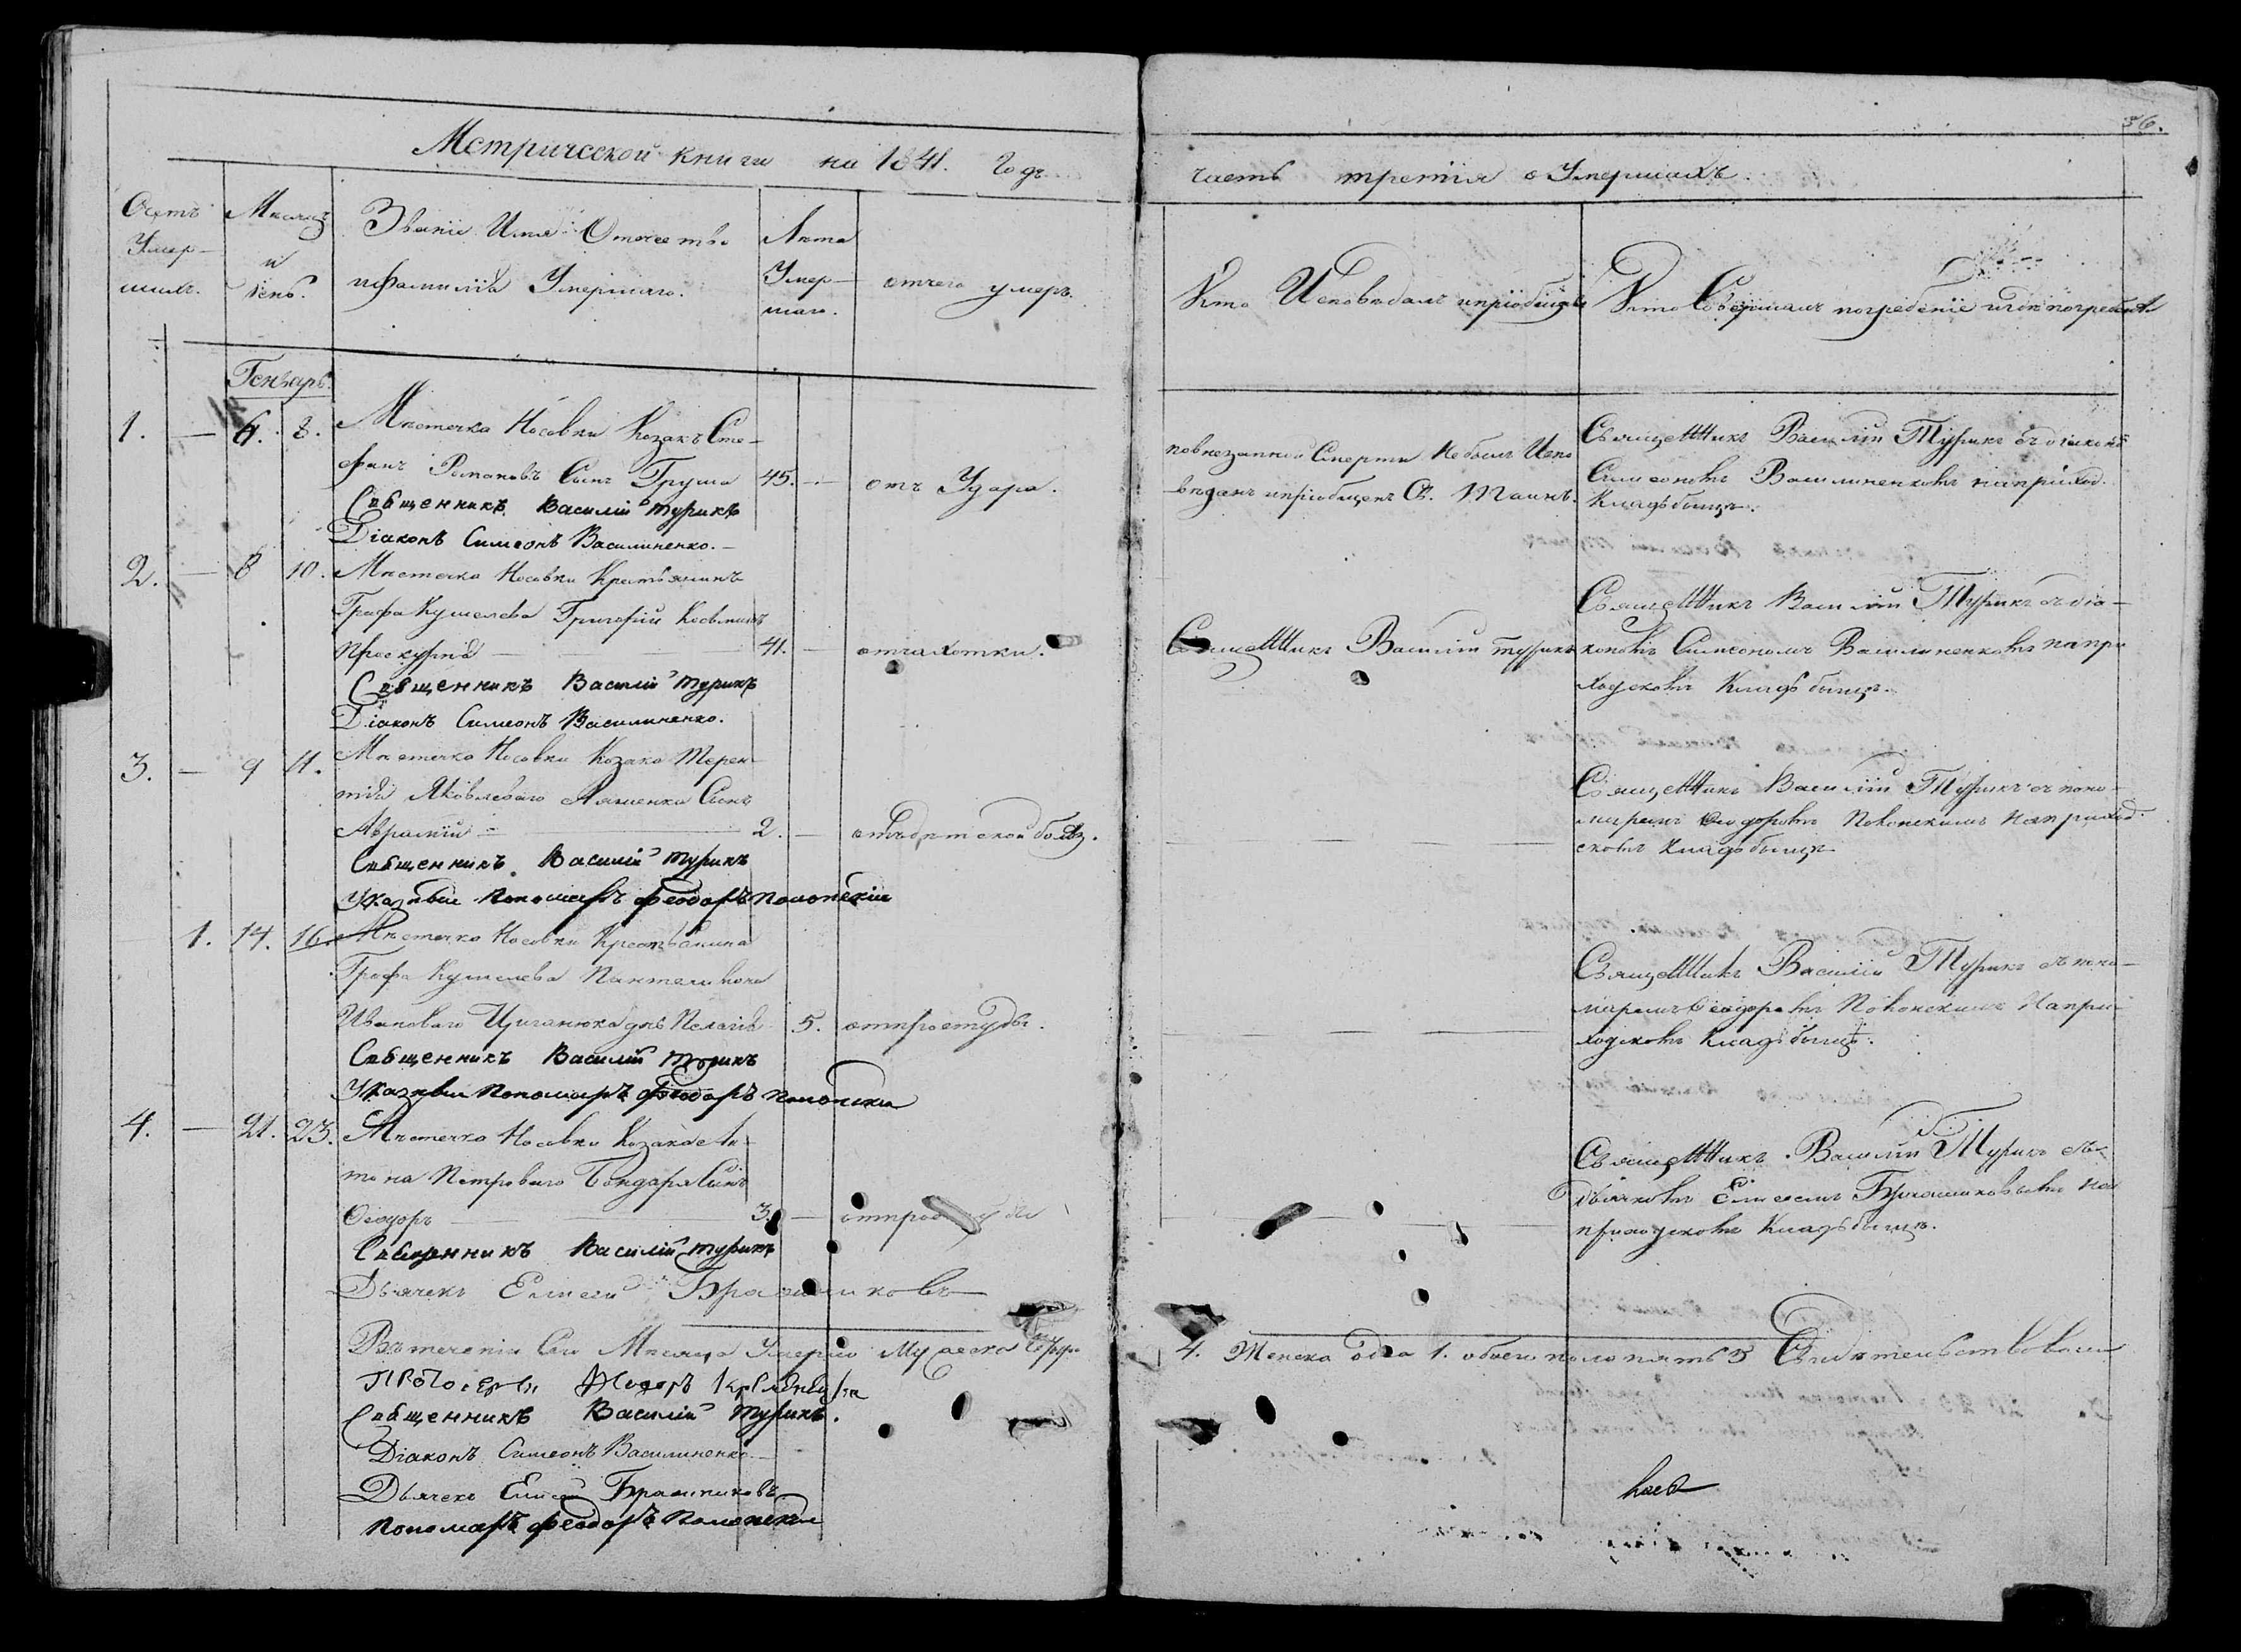 36.
Метрической книги на 1841. Годъ
часть третія о Умершихъ.
Счетъ Умер-шихъ.
Месяцъ и день.
Званіе Имя Отчество
и фамилія Умершаго.
Лета Умер-шаго.
отчего умеръ.
Кто Исповедалъ и пріобщалъ
Кто Совершалъ погребеніе и где погребенъ
Генварь.
1. — 6. 8. Местечка Носовки Козакъ Сте-
фанъ Романовъ Сынъ Груша 45. — отъ Удара.
Священникъ Василій Турикъ
Діаконъ Симеонъ Василиненко.—
по внезапной Смерти не былъ Испо
-веданъ и пріобщенъ Св. Таинъ.
Священникъ Василій Турикъ съ діакономъ
Симеономъ Василиненкомъ на приход.
Кладбище.
2. — 8 10. Местечка Носовки Крестьянинъ
Графа Кушелева Григорій Косьминъ
Проскурня — 41. — отчахотки.
Священникъ Василій Турикъ
Діаконъ Симеонъ Василиненко.
Священникъ Василій Турикъ
Священникъ Василій Турикъ съ діа-
кономъ Симеономъ Василиненкомъ на при
ходскомъ Кладбище.
3. — 9 11. Местечка Носовки Козака Терен-
тія Яковлеваго Ляшенка Сынъ
Аврамій — 2. — отъ детской болез.
Священникъ Василій Турикъ
Указный Пономарь Феодоръ Полонскій
Священникъ Василій Турикъ съ поно-
маремъ Феодоромъ Полонскимъ на приход-
скомъ Кладбище
1. 14. 16. Местечка Носовки Крестьянина
Графа Кушелева Пантелимона
Иванового Циганюка дочь Пелагія 5. отпростуды.
Священникъ Василій Турикъ
Указный Пономарь Феодоръ Полонскій
Священникъ Василій Турикъ съ поно-
маремъ Феодоромъ Полонскимъ На при-
ходскомъ Кладбище.
4. — 21. 23. Местечка Носовки Козака Ан-
тона Петроваго Бондаря Сынъ
Феодоръ — 3. — отпростуды
Священникъ Василій Турикъ
Дьячекъ Елисей Брашниковъ
Священникъ Василій Турикъ съ
дьячкомъ Елисеемъ Брашниковымъ на
приходскомъ Кладбище.
Въ теченіи Сего Месяца Умерло Мужеска
4. Женска одна 1. обоего пола пять 5 Свидетельствовали
Протоіерей
Священникъ Василій Турикъ.
Діаконъ Симеонъ Василиненко
Дьячекъ Елисей Брашниковъ
Пономарь Феодоръ Полонскій